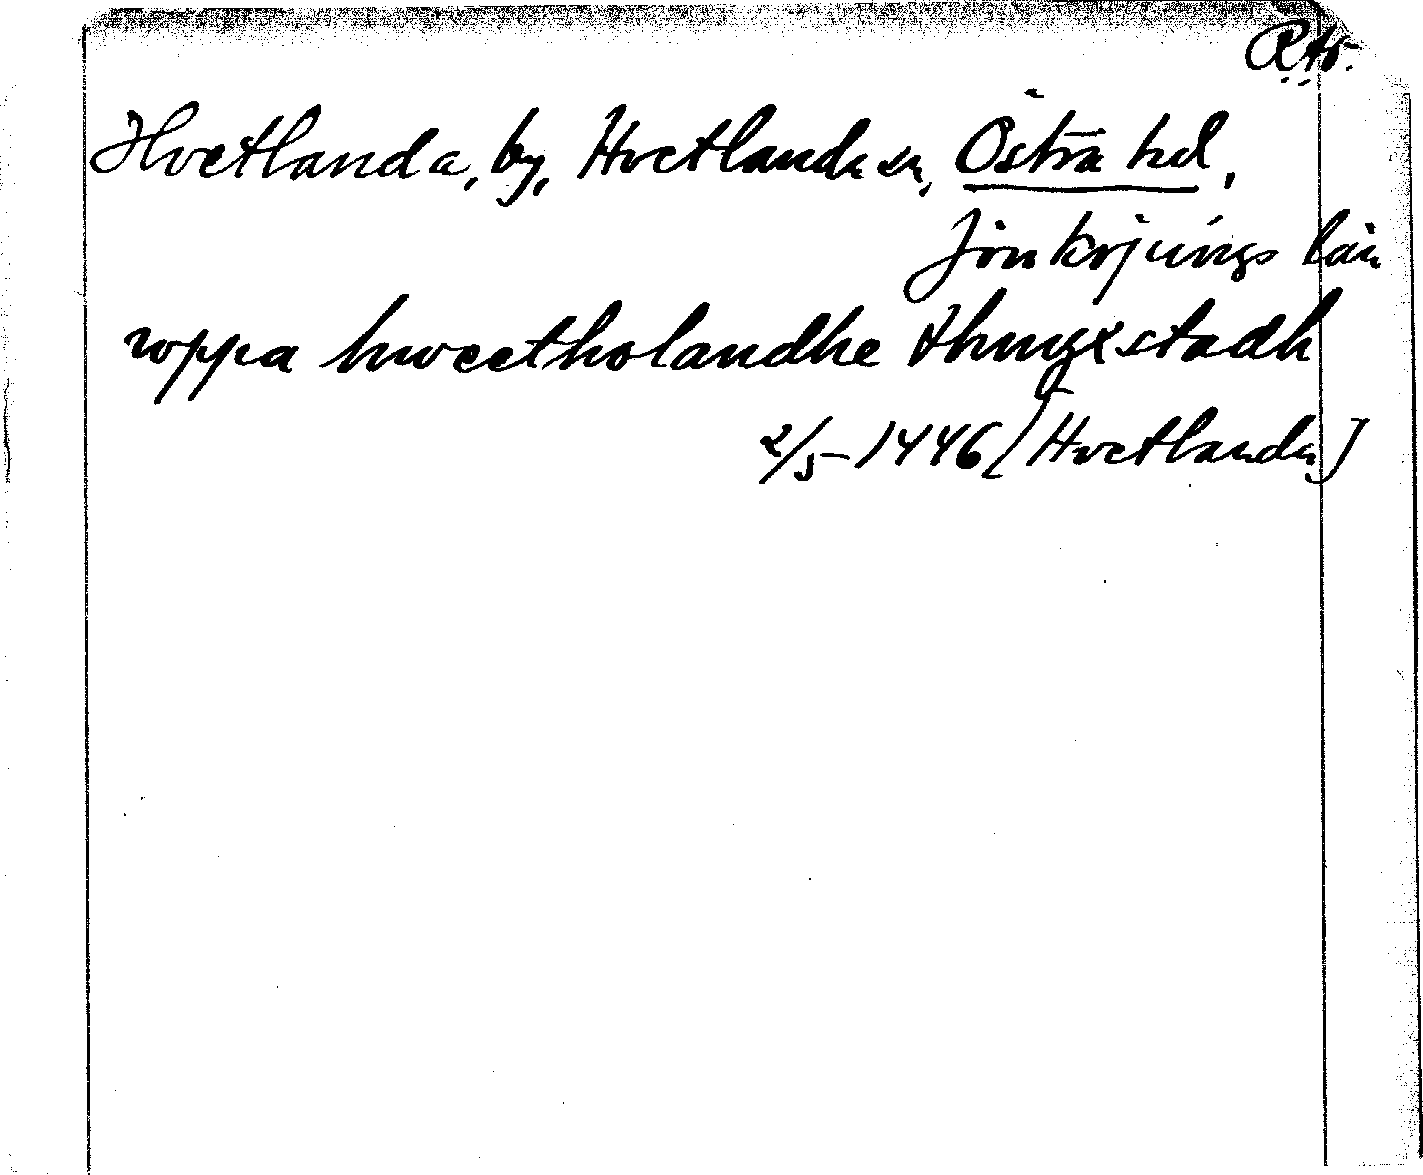 R.A.
Hvetlanda, by, Hvetlanda sn, Östra hd,
Jönköpings län
wppa hweetholandhe thingxstadh
2/5 1446 [Hvetlanda]